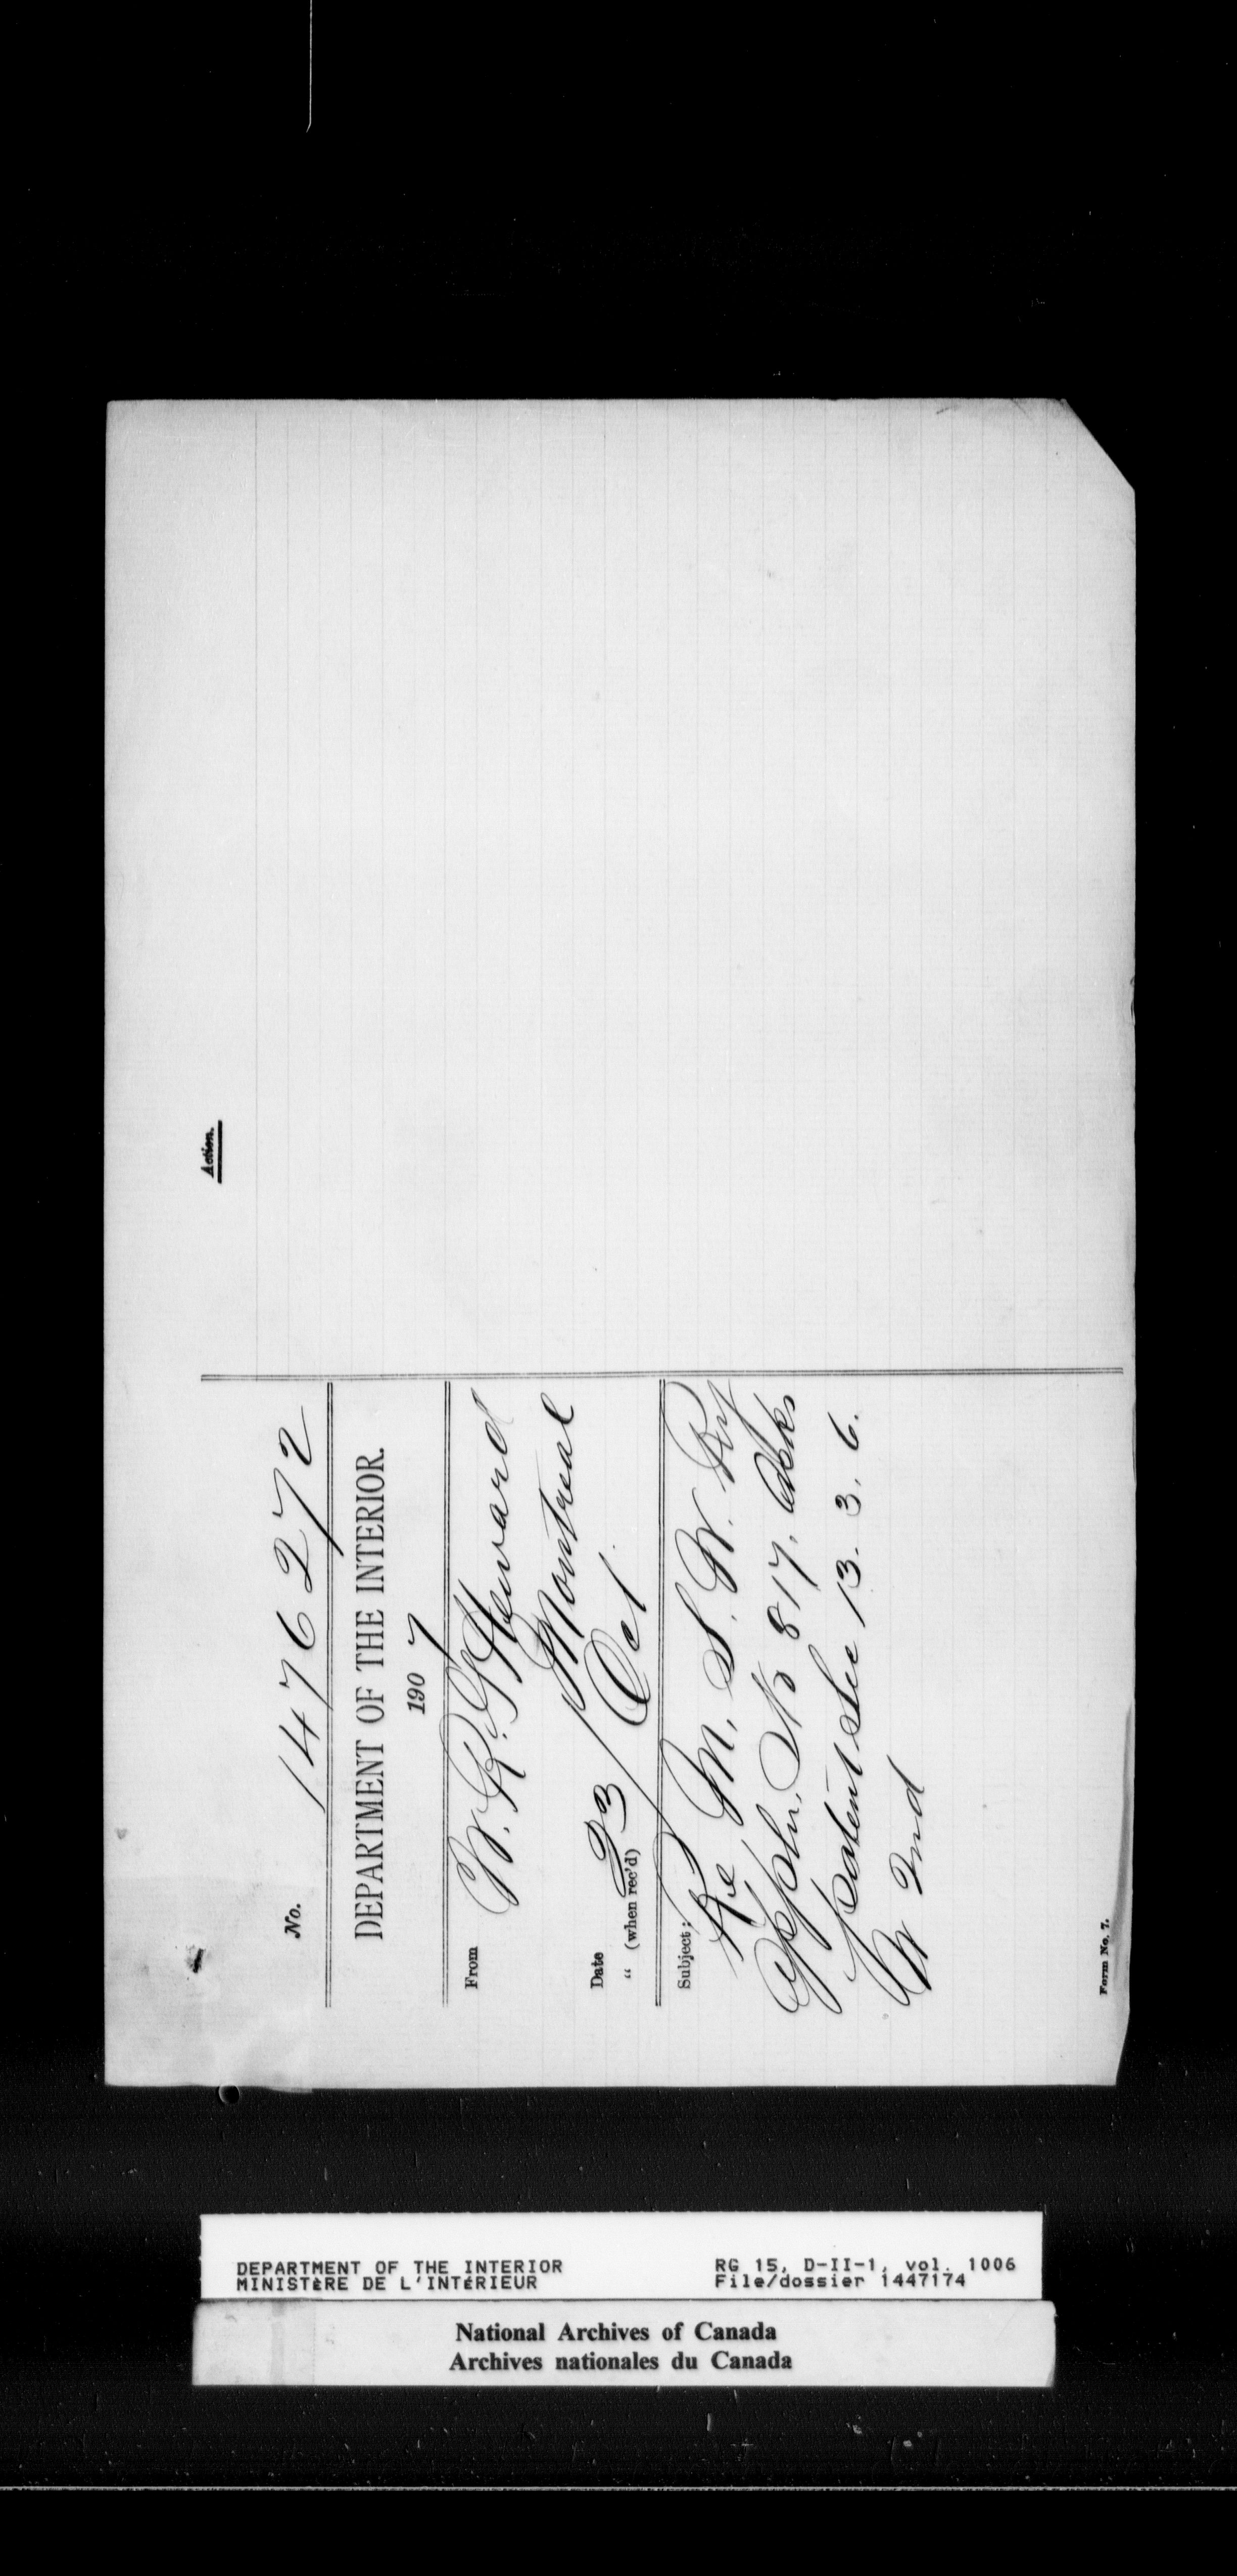 Action.
No. 1476272
DEPARTMENT OF THE INTERIOR.
1907
From W. R. G. Heward
Montreal
Date
" (when rec'd) 23 Oct
Subject:
Re M. S. W. Ry
Appln. No 817. Asks
patent Sec 13. 3. 6.
W 2nd
Form No. 7.
DEPARTMENT OF THE INTERIOR
MINISTÈRE DE L'INTÉRIEUR
RG 15, D-II-1, vol. 1006
File/dossier 1447174
National Archives of Canada
Archives nationales du Canada